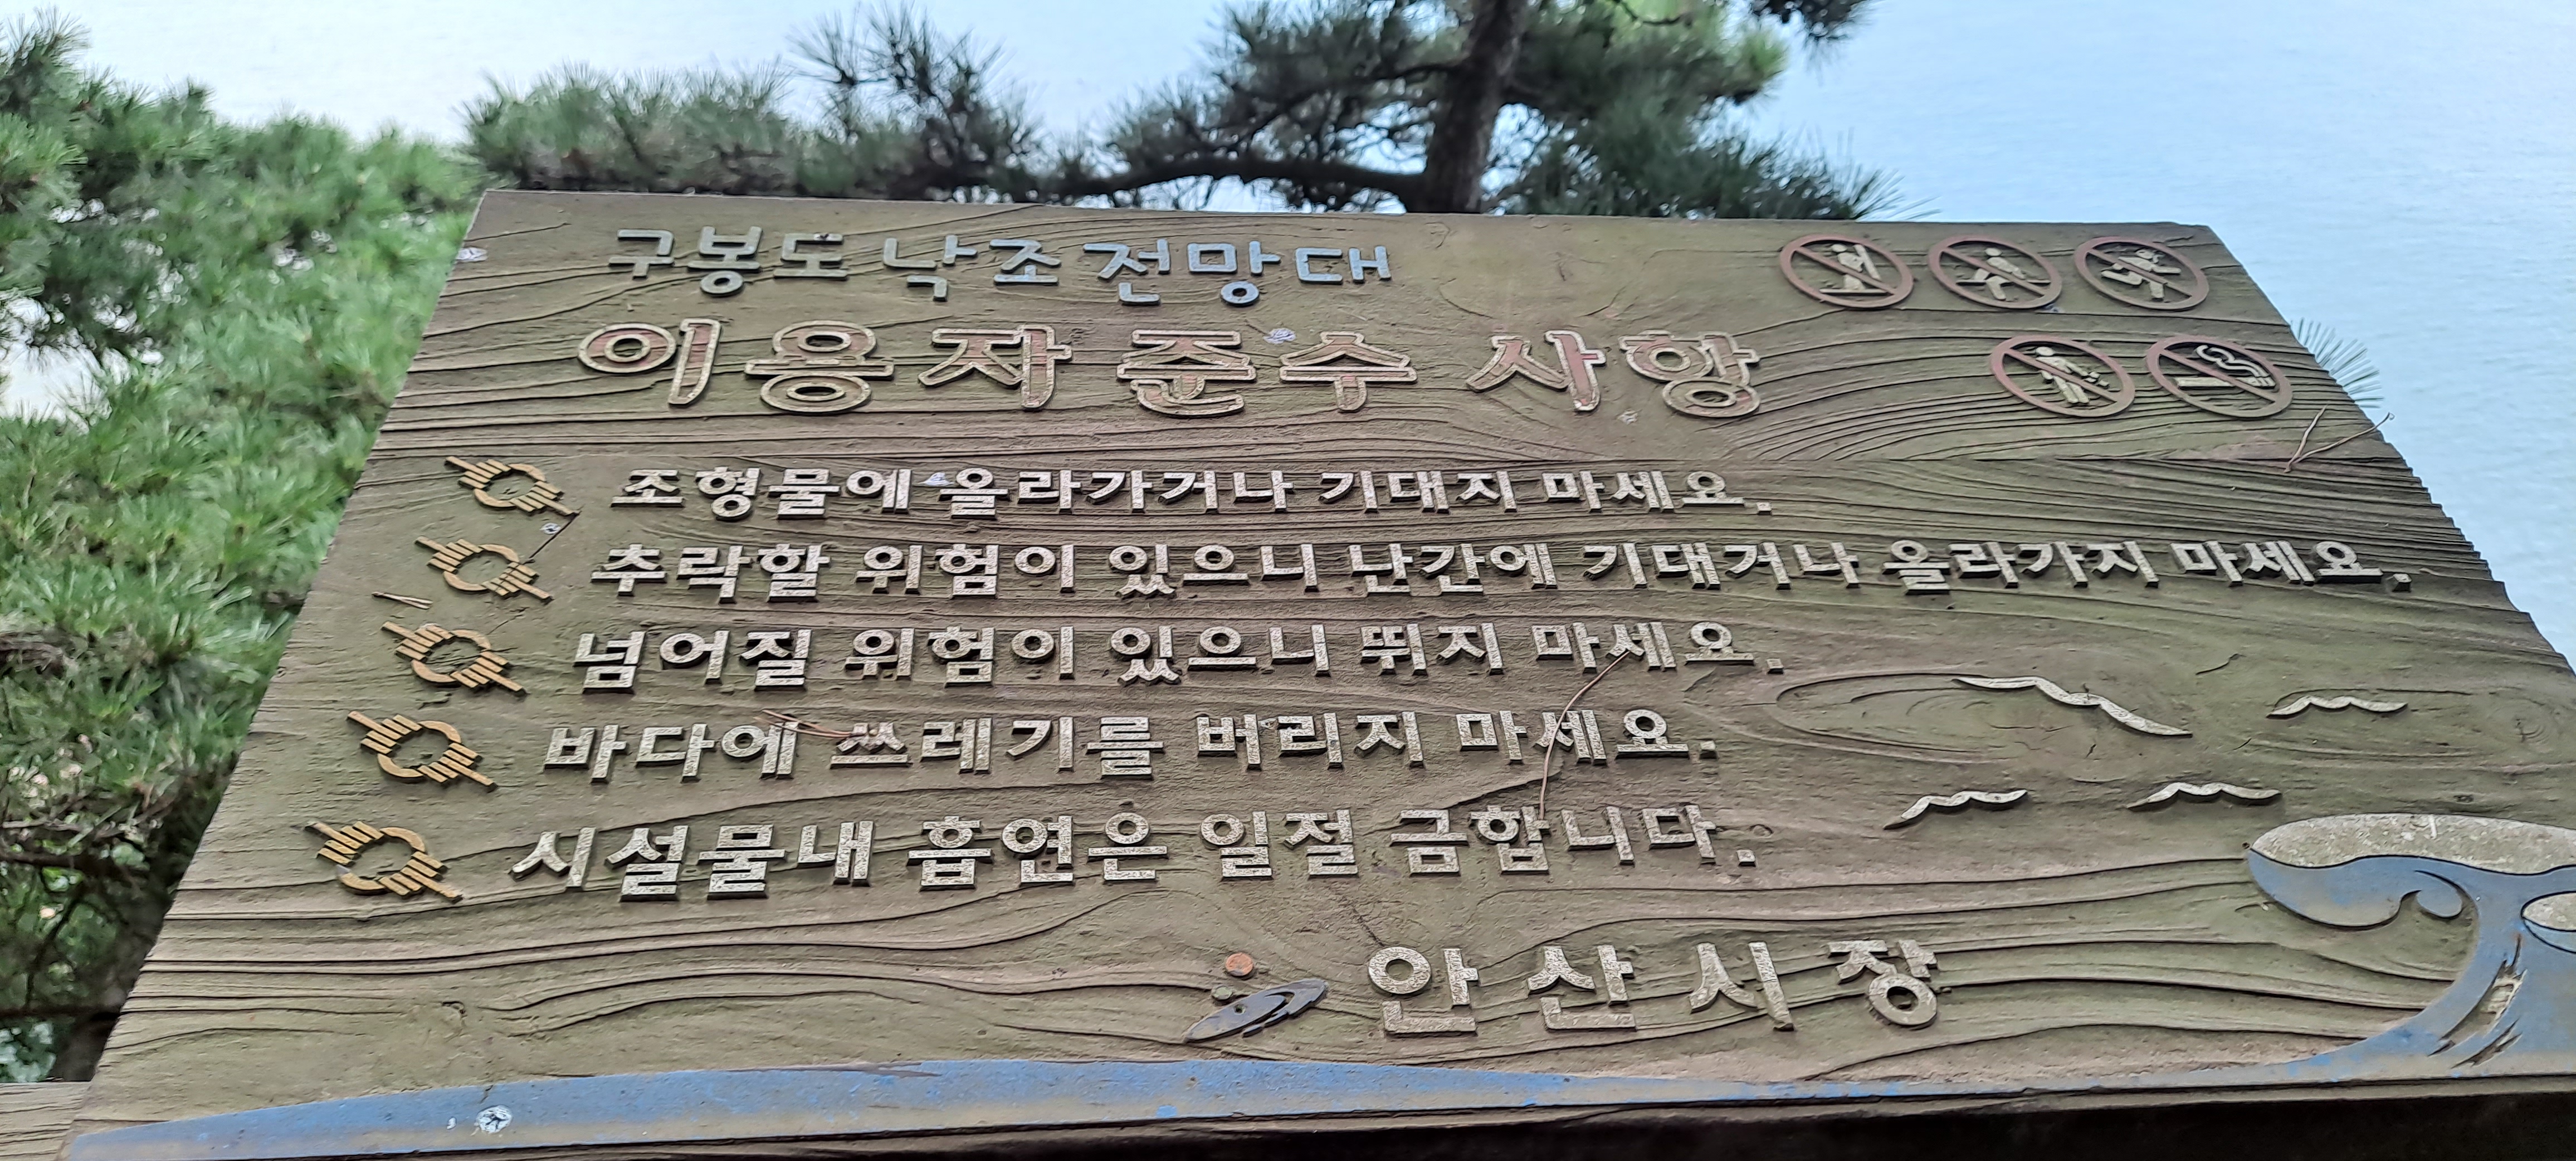 구봉도 낙조전망대
이용자 준수 사항
조형물에 올라가거나 기대지 마세요.
추락할 위험이 있으니 난간에 기대거나 올라가지 마세요.
넘어질 위험이 있으니 뛰지 마세요.
바다에 쓰레기를 버리지 마세요.
시설물내 흡연은 일절 금합니다.
안산시장